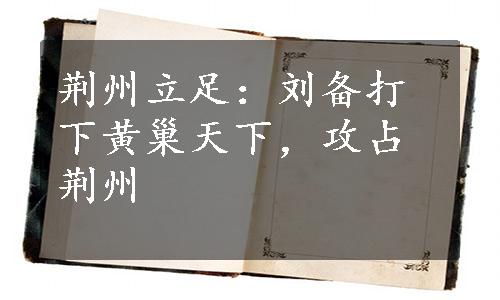 荆州立足：刘备打
下黄巢天下，攻占
荆州